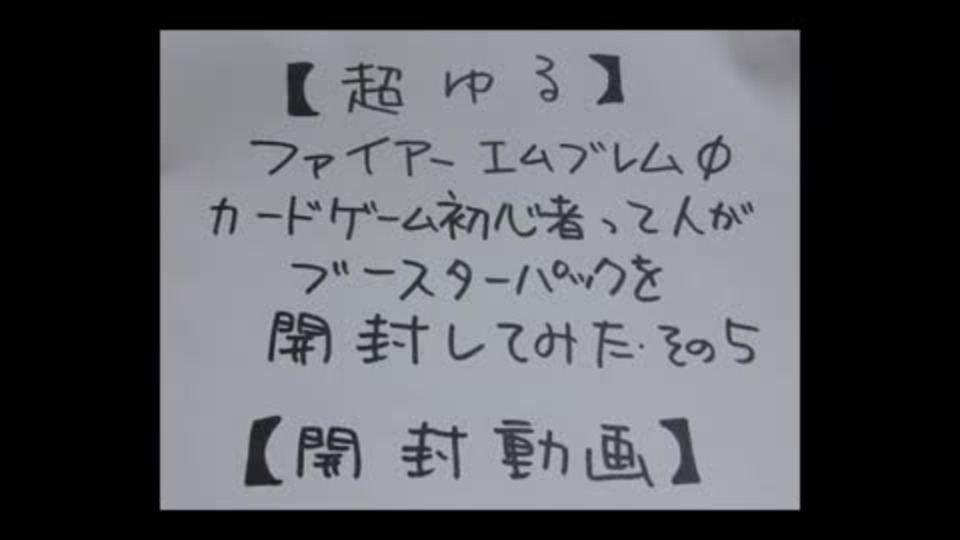 【超ゆる】
ファイアーエムブレム0
カードゲーム初心者って人が
ブースターパックを
開封してみた.その5
【開封動画】